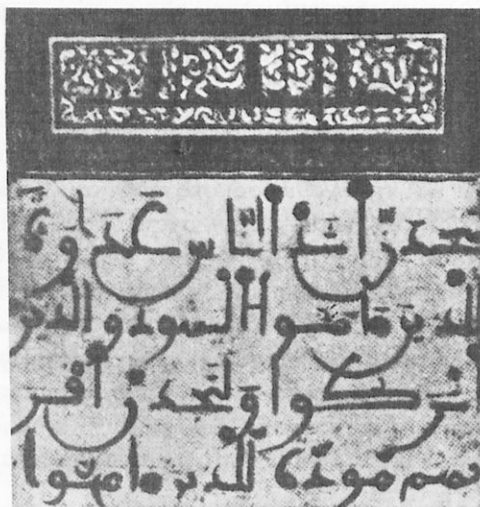 لتجدن اشد الناس عدوة
للذين ءامنوا اليهود والذين
اشركوا ولتجدن اقر
بهم مودة للذين ءامنوا